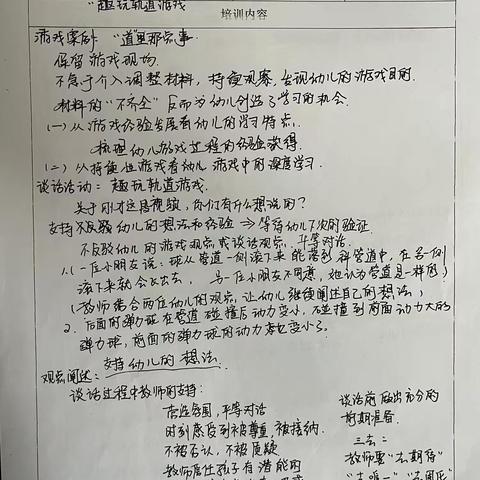 "趣玩轨道游戏
培训内容
游戏案例: "道"里那点事.
保留游戏现场.
不急于介入调整材料, 持续观察, 发现幼儿的游戏目的.
材料的"不齐全"反而为幼儿创造了学习的机会.
(一) 从游戏经验发展看幼儿的学习特点.
梳理幼儿游戏过程的经验获得.
(二) 从持续性游戏看幼儿游戏中的深度学习.
谈话活动: 趣玩轨道游戏.
关于刚才这段视频, 你们有什么想说的?
支持不反驳幼儿的想法和经验 ⇒ 等待幼儿下次的验证.
不反驳幼儿的游戏观点或谈话观点, 平等对话.
1. (一位小朋友说: 球从管道一侧滚下来能落到斜管道中, 在另一侧
滚下来就会飞出去, 另一位小朋友不同意, 她认为管道是一样的)
(教师结合两位幼儿的观点, 让幼儿继续阐述自己的想法)
2. 后面的弹力球在管道碰撞后动力变小, 碰撞到前面动力大的
弹力球, 前面的弹力球的动力就也变小了.
支持幼儿的想法.
观点阐述:
谈话过程中教师的支持:
营造氛围, 平等对话
时刻感受到被尊重, 被接纳.
不被否认, 不被质疑
教师居住孩子有潜能的
谈话前做出充分的
前期准备.
三去:
教师要"去期待"
"去唯一" "去固化"